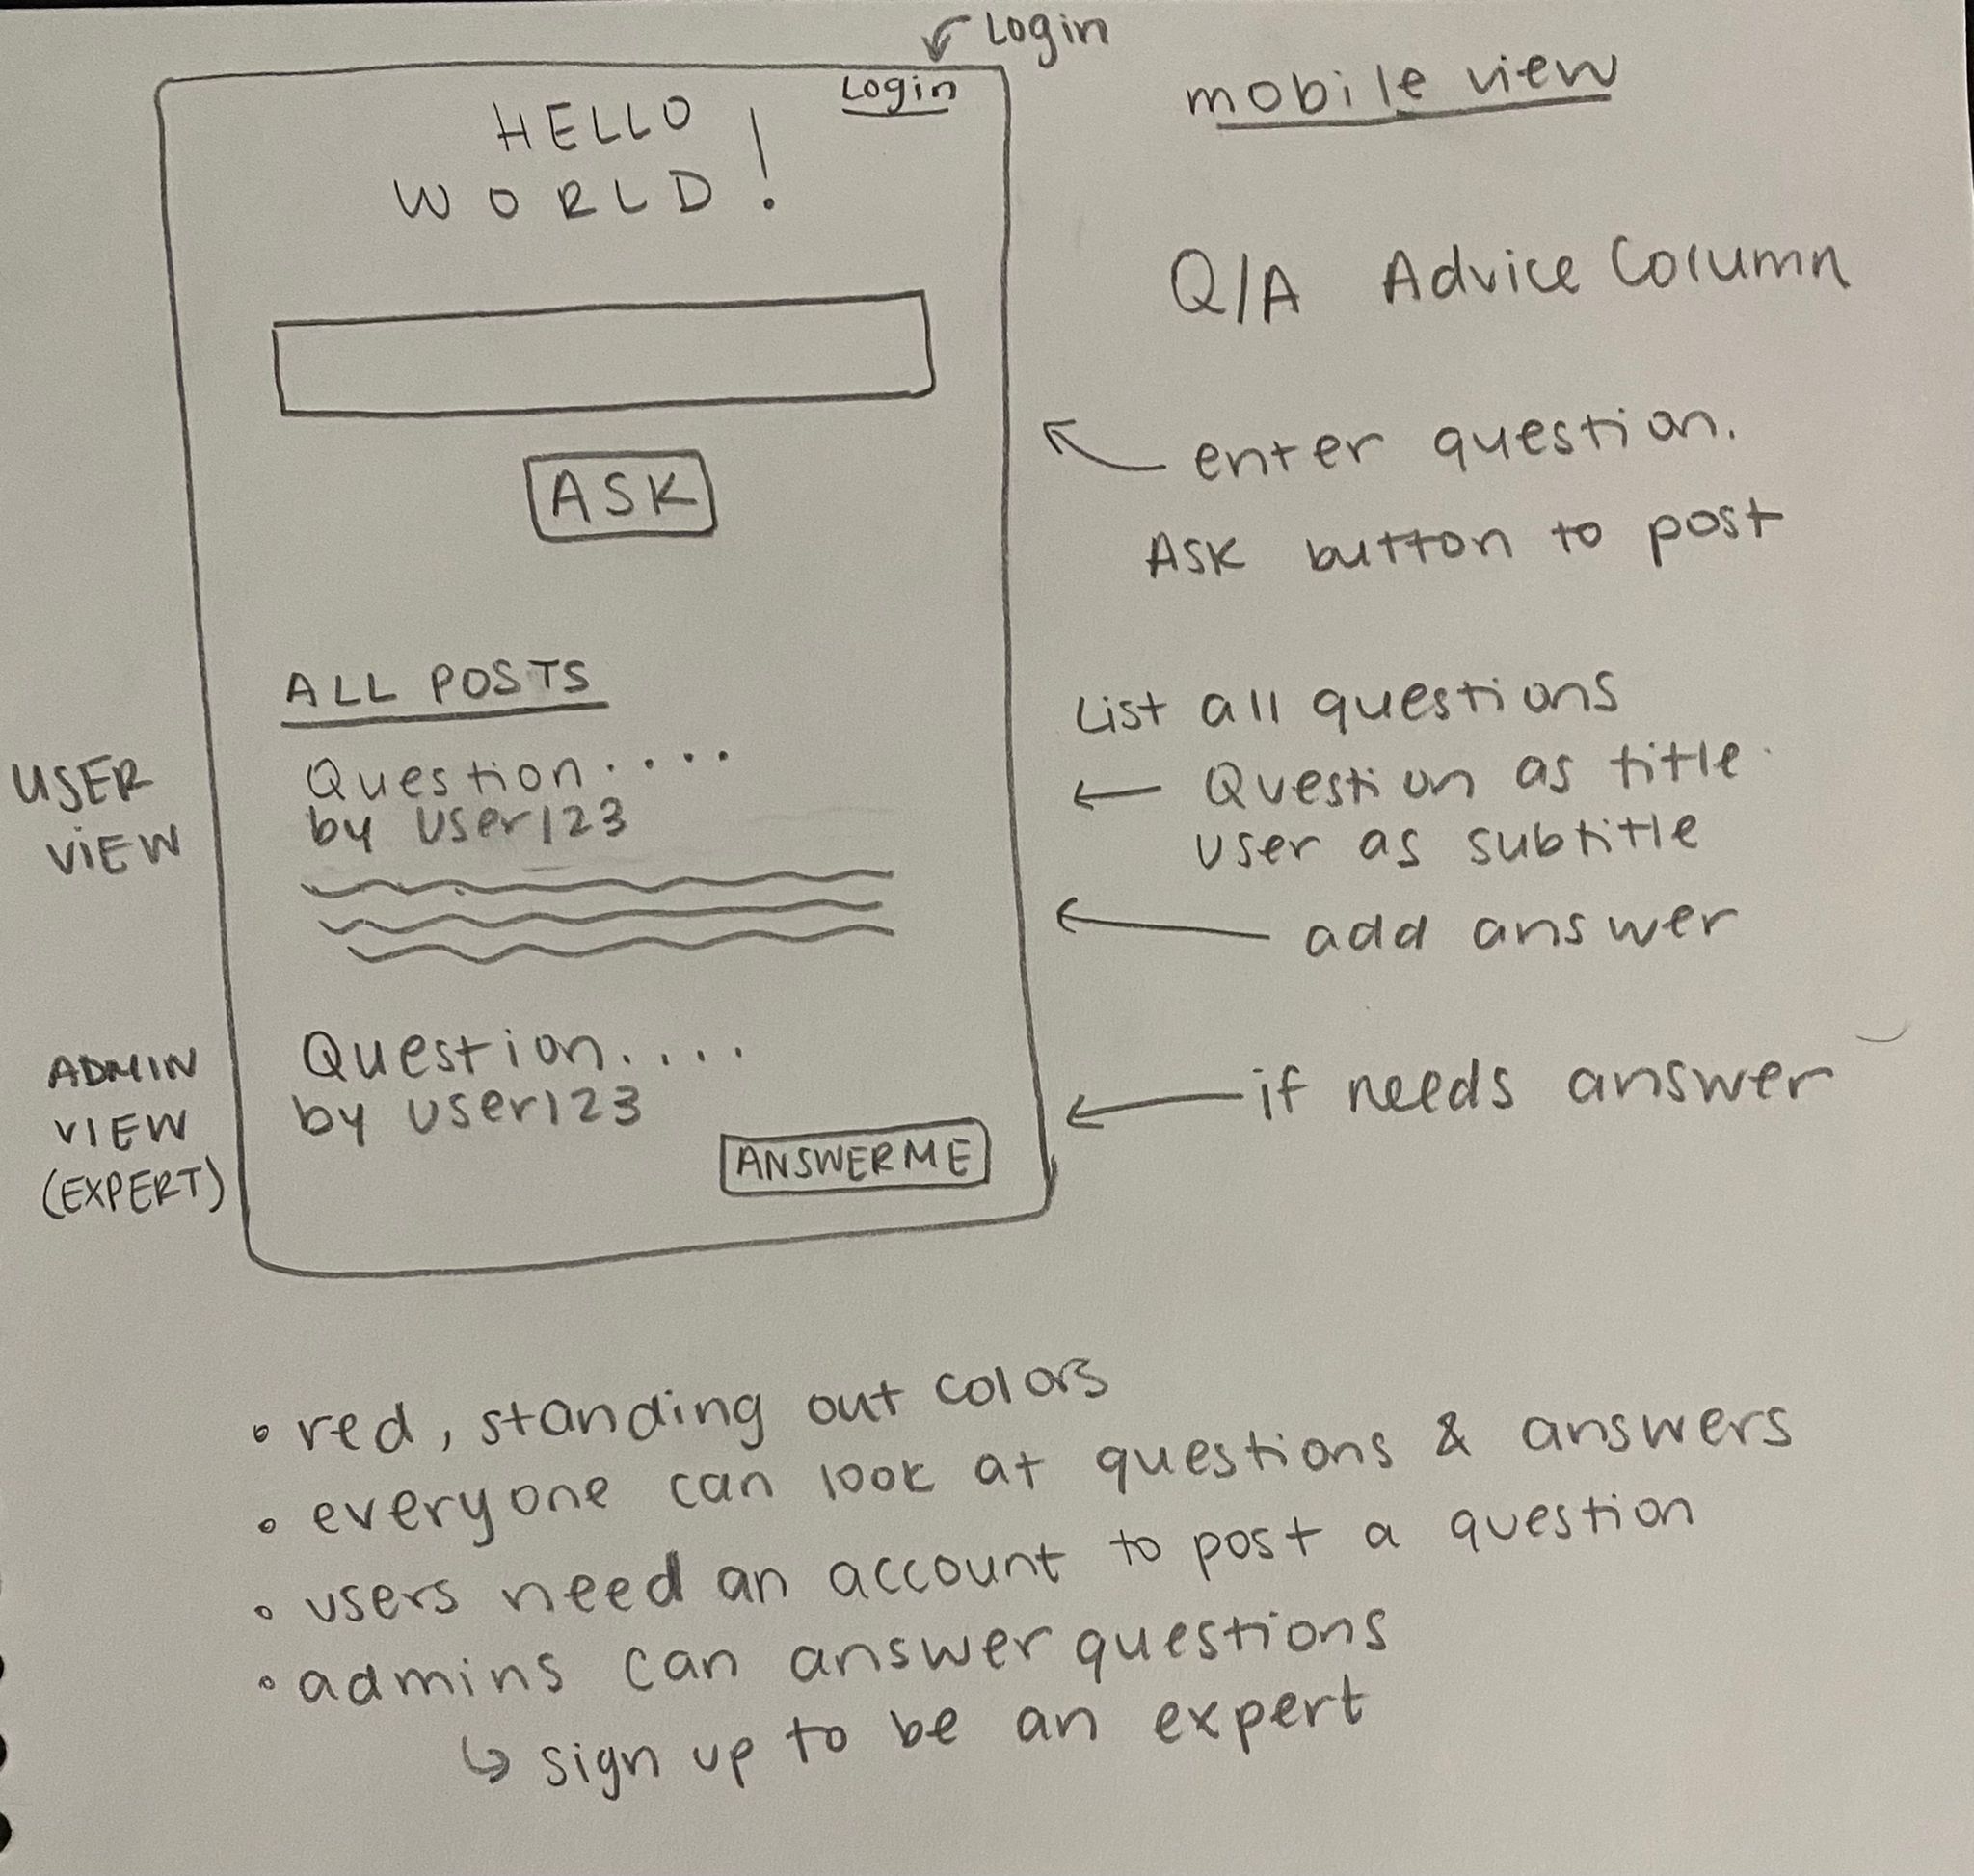 Login
Login
mobile view
HELLO
WORLD!
Q/A Advice Column
enter question.
ASK
ASK button to post
ALL POSTS
List all questions
USER
VIEW
Question....
by user123
Question as title
user as subtitle
add answer
ADMIN
VIEW
(EXPERT)
Question....
by user123
if needs answer
ANSWER ME
• red, standing out colors
• everyone can look at questions & answers
• users need an account to post a question
• admins can answer questions
↳ sign up to be an expert